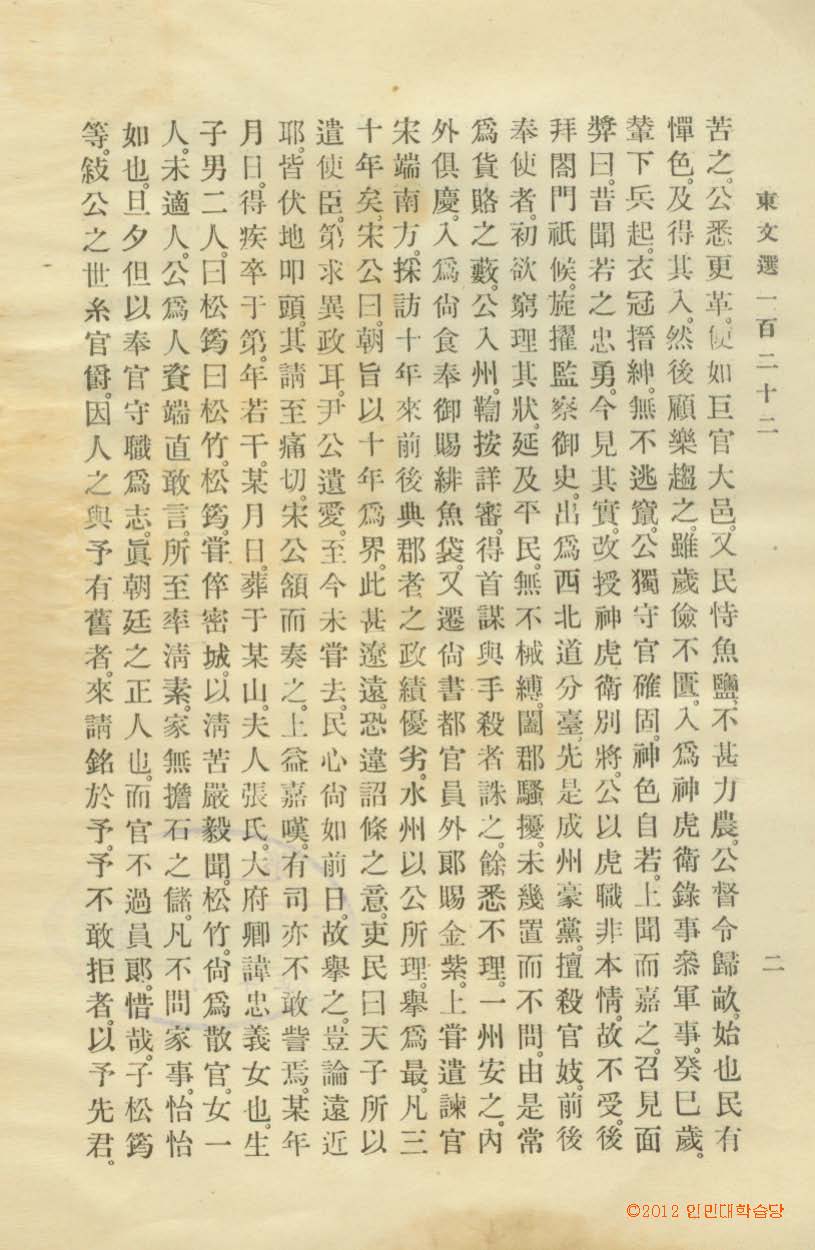 東文選一百二十二
二
苦之。公悉更革。便如巨官大邑。又民恃魚鹽。不甚力農。公督令歸畝。始也民有
憚色。及得其入。然後顧樂趨之。雖歲儉不匱。入爲神虎衛錄事叅軍事。癸巳歲。
輦下兵起。衣冠搢紳。無不逃竄。公獨守官確固。神色自若。上聞而嘉之。召見面
獎曰。昔聞若之忠勇。今見其實。改授神虎衛別將。公以虎職非本情。故不受。後
拜閤門祇候。旋擢監察御史。出爲西北道分臺。先是成州豪黨。擅殺官妓。前後
奉使者。初欲窮理其狀。延及平民。無不械縛。闔郡騷擾。未幾置而不問。由是常
爲貨賂之藪。公入州。鞫按詳審。得首謀與手殺者誅之。餘悉不理。一州安之。內
外俱慶。入爲尙食奉御賜緋魚袋。又遷尙書都官員外郞賜金紫。上甞遣諫官
宋端南方。採訪十年來前後典郡者之政績優劣。水州以公所理。擧爲最。凡三
十年矣。宋公曰。朝旨以十年爲界。此甚遼遠。恐違詔條之意。吏民曰天子所以
遣使臣。第求異政耳。尹公遺愛。至今未甞去。民心尙如前日。故擧之。豈論遠近
耶。皆伏地叩頭。其請至痛切。宋公頷而奏之。上益嘉嘆。有司亦不敢訾焉。某年
月日。得疾卒于第。年若干。某月日。葬于某山。夫人張氏。大府卿諱忠義女也。生
子男二人。曰松筠曰松竹。松筠。甞倅密城。以淸苦嚴毅聞。松竹。尙爲散官。女一
人。未適人。公爲人資端直敢言。所至率淸素。家無擔石之儲。凡不問家事。怡怡
如也。旦夕但以奉官守職爲志。眞朝廷之正人也。而官不過員郞。惜哉。子松筠
等。敍公之世系官爵。因人之與予有舊者。來請銘於予。予不敢拒者。以予先君。
©2012 인민대학습당